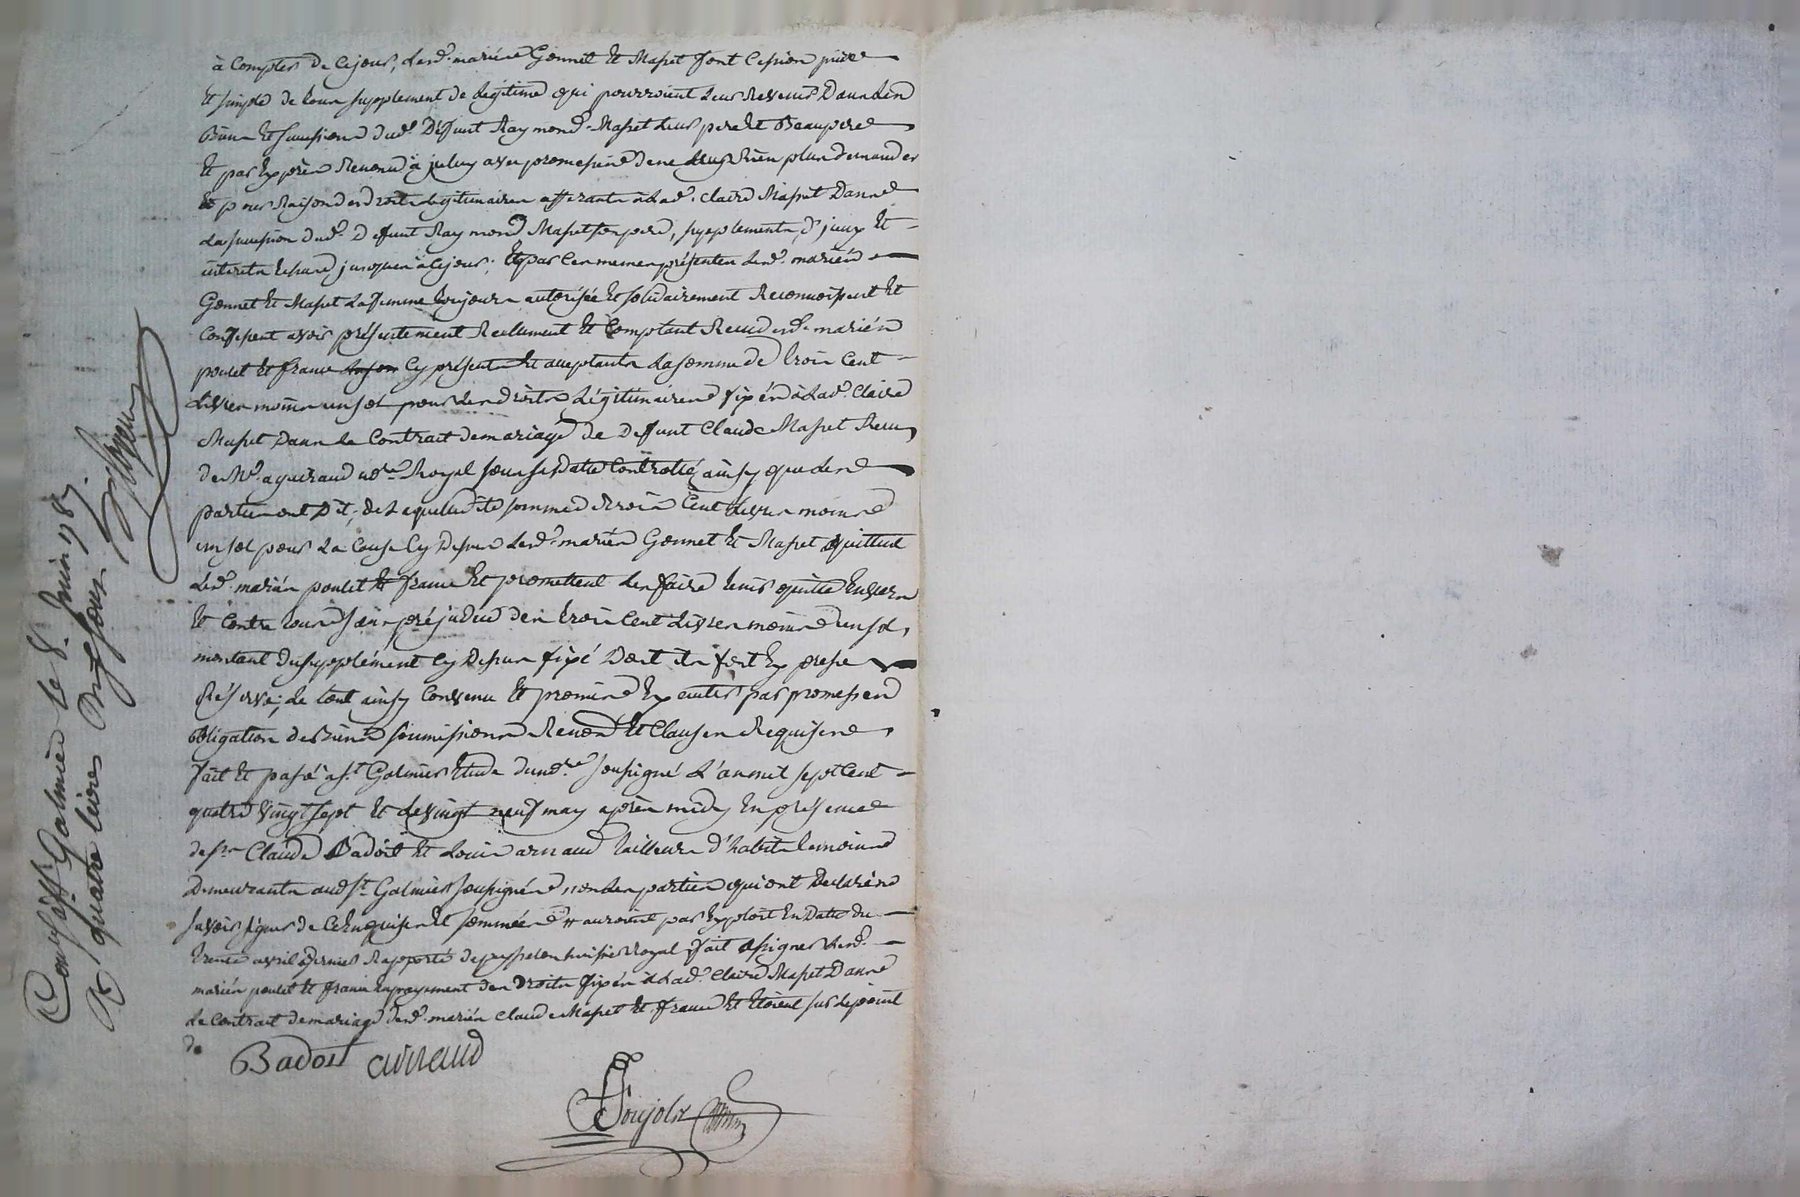 à Compter de Cejour, lesd. mariés Gonnet Et Masset font Cession pure
Et simple de leur supplement de Légitime qui pourroient leur Revenir Dans les
Biens Et successions dud. Défunt Raymond Masset leur pere Et Beaupere
Et par Exprès Renoncé à jceluy avec promesse de ne leur Rien plus demander
pour Raison des droits Légitimaires afferants à Lad. Claire Masset Dans
La succession dud. Defunt Raymond Masset son pere, supplements d'jceux Et
interets Echus jusques à Cejour; Et par Ces memes présentes lesd. mariés
Gonnet Et Masset La femme toujours autorisée Et solidairement Reconnoissent Et
Confessent avoir présentement Reellement Et Comptant Recu desd. mariés
poulet Et france Cy présents Et acceptants La somme de trois Cent
Livres moins un sol pour les droits Légitimaires fixés à Lad. Claire
Masset Dans le Contrat de mariage de Defunt Claude Masset Recu
de Me. aguiraud nore. Royal sous sa date Controllé ainsy que les
parties ont Dit; de Laquelle dite somme de trois Cent Livres moins
un sol pour La Cause Cy Dessus lesd. mariés Gonnet Et Masset quittent
Lesd. mariés poulet Et france Et promettent les faire tenir quitte Envers
Et Contre tous sans préjudice des trois Cent Livres moins un sol,
montant du supplément Cy Dessus fixé Dont ils font Expresse
Réserve; le tout ainsy Convenu Et promis Executer par promesses
obligation de Biens soumissions Renon. Et Clauses Requises
fait Et passé à St. Galmier Etude du nore. soussigné L'an mil sept Cent
quatre vingt sept Et le vingt neuf may après midy En présence
de srs Claude Badoit Et Louis arnaud tailleurs d'habits temoins
Demeurants aud. St. Galmier soussignés, non les parties qui ont Declaré ne
savoir signer de Ce Enquises Et sommées # auroient par Exploit En Date du
trente avril dernier Raporté de huissier Royal fait assigner lesd.
mariés poulet Et france En payement des Droits fixés à Lad. Claire Masset Dans
Le Contrat de mariage desd. mariés Claude Masset Et france Et Etoient sur le point
de
Badoit arnaud
Poujols
Con. à St. Galmier le 8. Juin 1787.
R. quatre livres dix sous